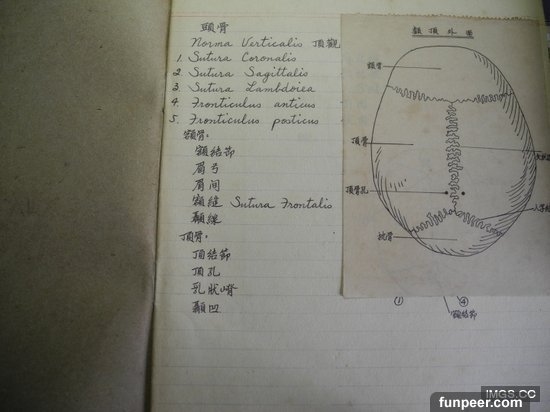 頭骨
Norma Verticalis 頂觀
1. Sutura Coronalis
2. Sutura Sagittalis
3. Sutura Lambdoiea
4. Fronticulus anticus
5. Fronticulus posticus
額骨:
額結節
眉弓
眉间
額縫 Sutura Frontalis
顳線
頂骨:
頂結節
頂孔
乳狀嵴
顳凹
顱頂外面
額骨
頂骨
頂骨孔
枕骨
① ④
額結節
IMGS.CC
funpeer.com